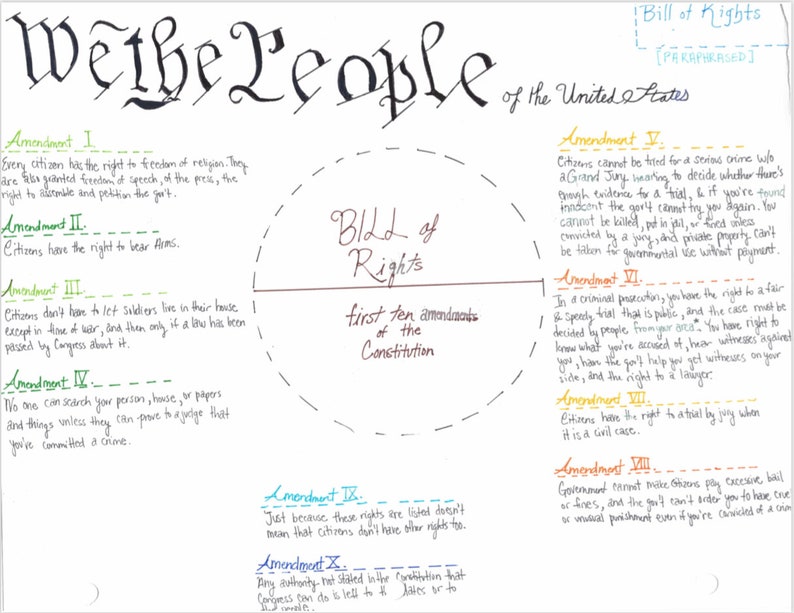 We the People of the United States
Bill of Rights
[PARAPHRASED]
Amendment I.
Every citizen has the right to freedom of religion. They
are also granted freedom of speech, of the press, the
right to assemble and petition the gov't.
Amendment II.
Citizens have the right to bear Arms.
Amendment III.
Citizens don't have to let soldiers live in their house
except in time of war, and then only if a law has been
passed by Congress about it.
Amendment IV.
No one can search your person, house, or papers
and things unless they can prove to a judge that
you've committed a crime.
BILL of
Rights
first ten amendments
of the
Constitution
Amendment V.
Citizens cannot be tried for a serious crime w/o
a Grand Jury hearing to decide whether there's
enough evidence for a trial, & if you're found
innocent the gov't cannot try you again. You
cannot be killed, put in jail, or fined unless
convicted by a jury, and private property can't
be taken for governmental use without payment.
Amendment VI.
In a criminal prosecution, you have the right to a fair
& speedy trial that is public, and the case must be
decided by people from your area*. You have right to
know what you're accused of, hear witnesses against
you, have the gov't help you get witnesses on your
side, and the right to a lawyer.
Amendment VII.
Citizens have the right to a trial by jury when
it is a civil case.
Amendment VIII.
Government cannot make citizens pay excessive bail
or fines, and the gov't can't order you to have crue
or unusual punishment even if you're convicted of a crim
Amendment IX.
Just because these rights are listed doesn't
mean that citizens don't have other rights too.
Amendment X.
Any authority not stated in the Constitution that
Congress can do is left to th ates or to
the people.